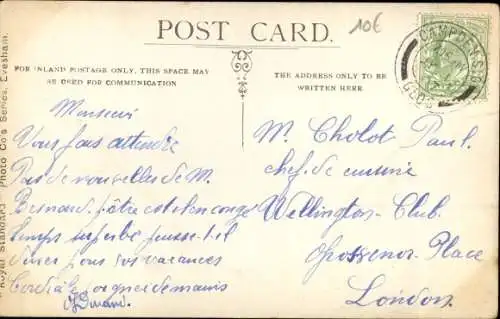 POST CARD.
10€
CAMPDEN S.O.
GLOS
FOR INLAND POSTAGE ONLY, THIS SPACE MAY
BE USED FOR COMMUNICATION
THE ADDRESS ONLY TO BE
WRITTEN HERE.
Royal Standard Photo Co's Series, Evesham.
Monsieur
Vous fais attendre
Pas de nouvelles de M.
Besnard. être en congé
temps superbe
vous vacances
Cordiale poignée de mains
M. Cholot Paul.
chef de cuisine
Wellington-Club.
Grossenor-Place
London